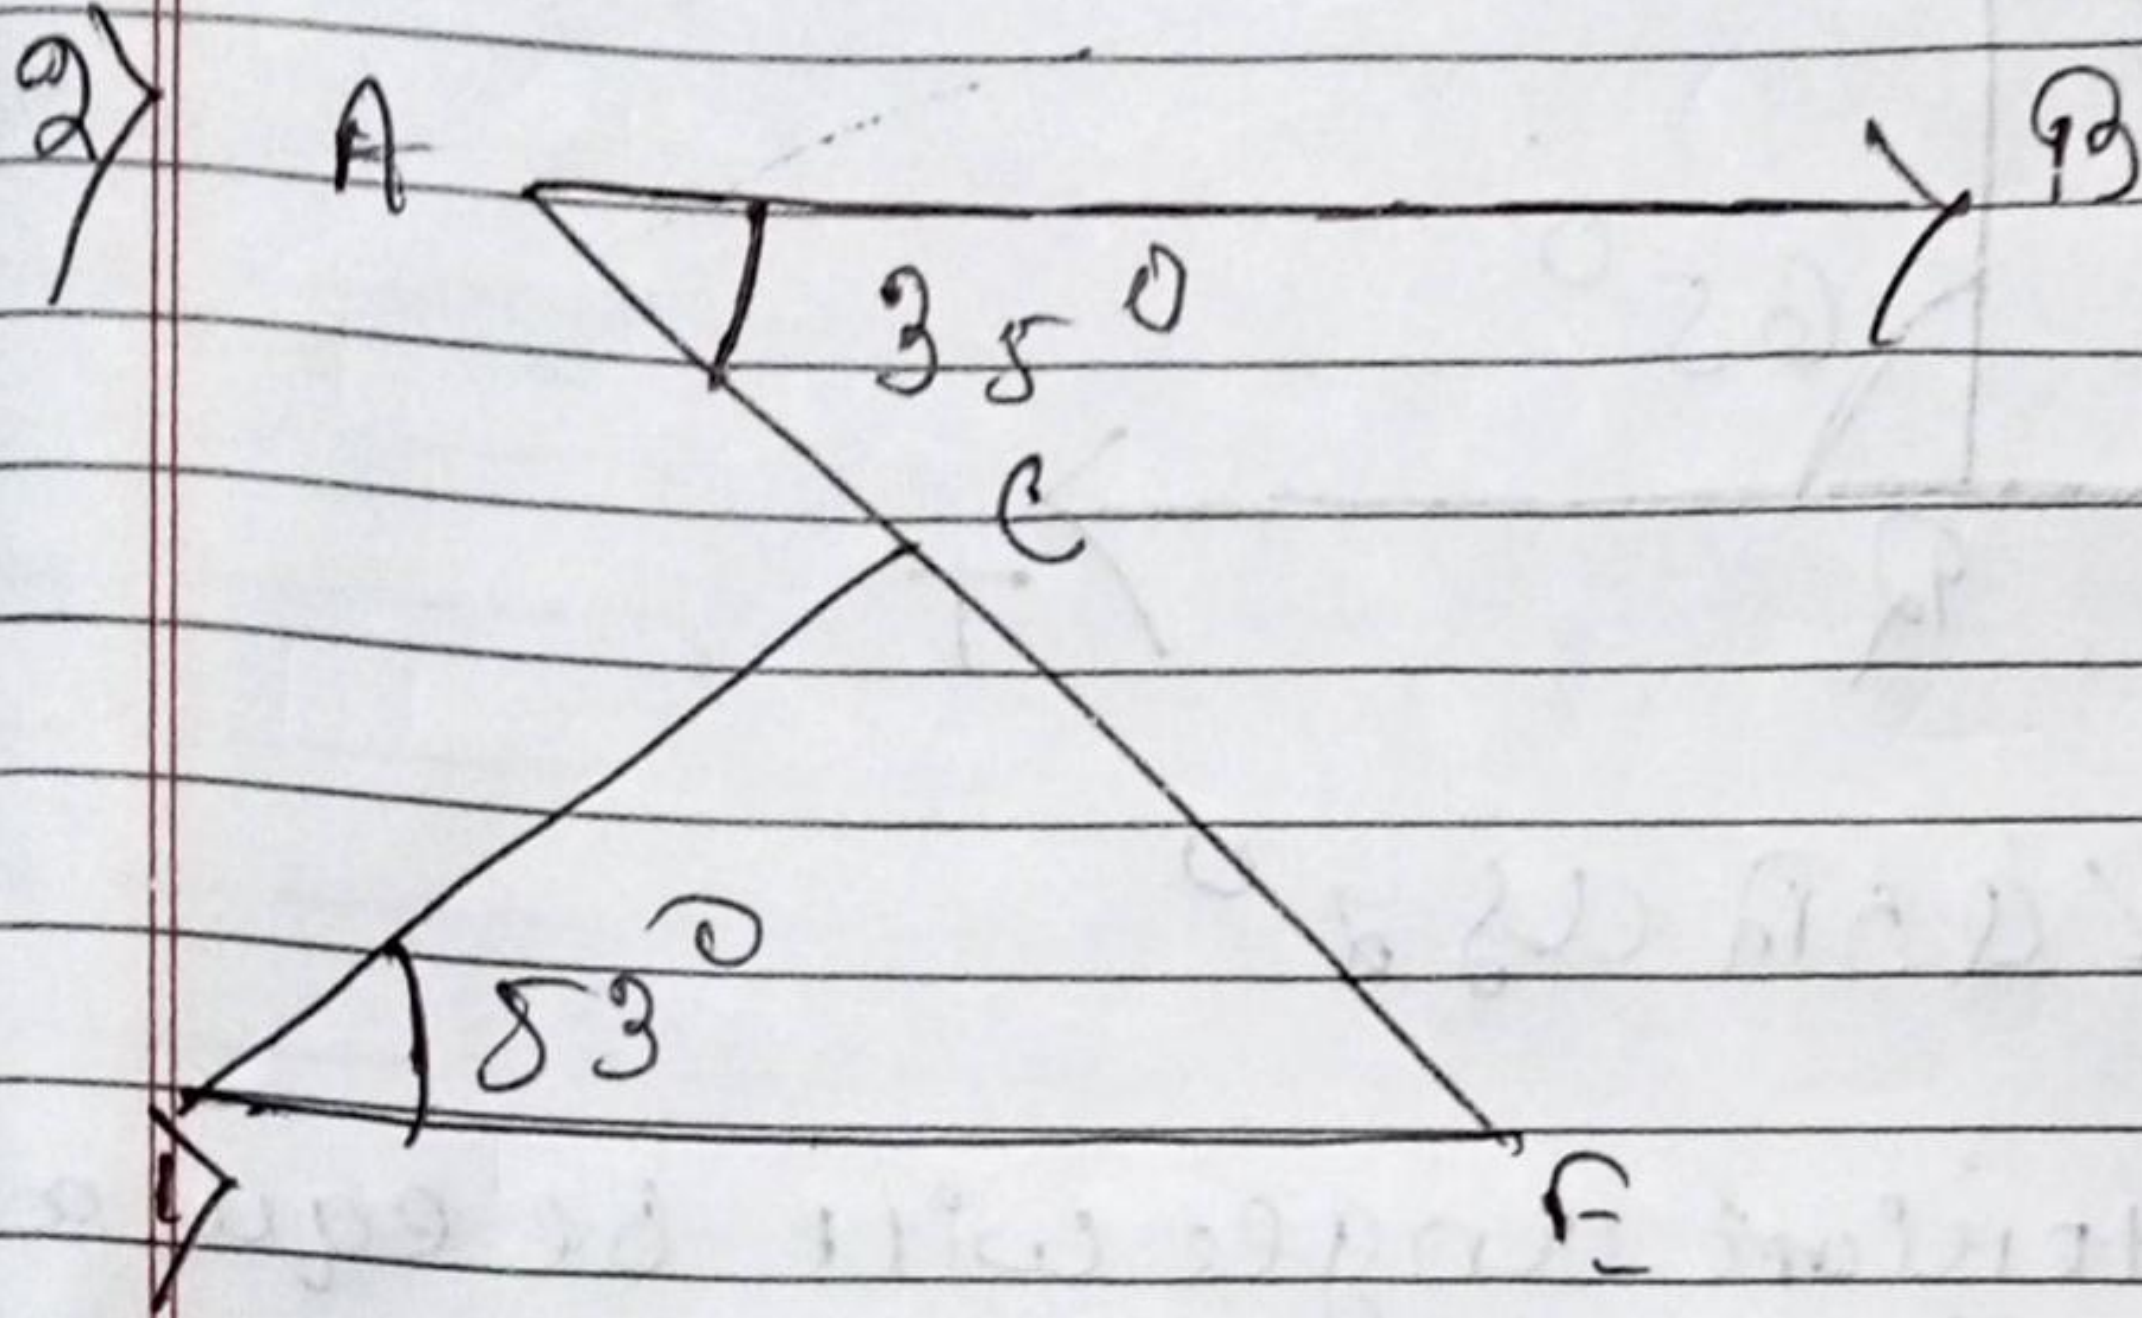 2)
A
B
35°
C
53°
E